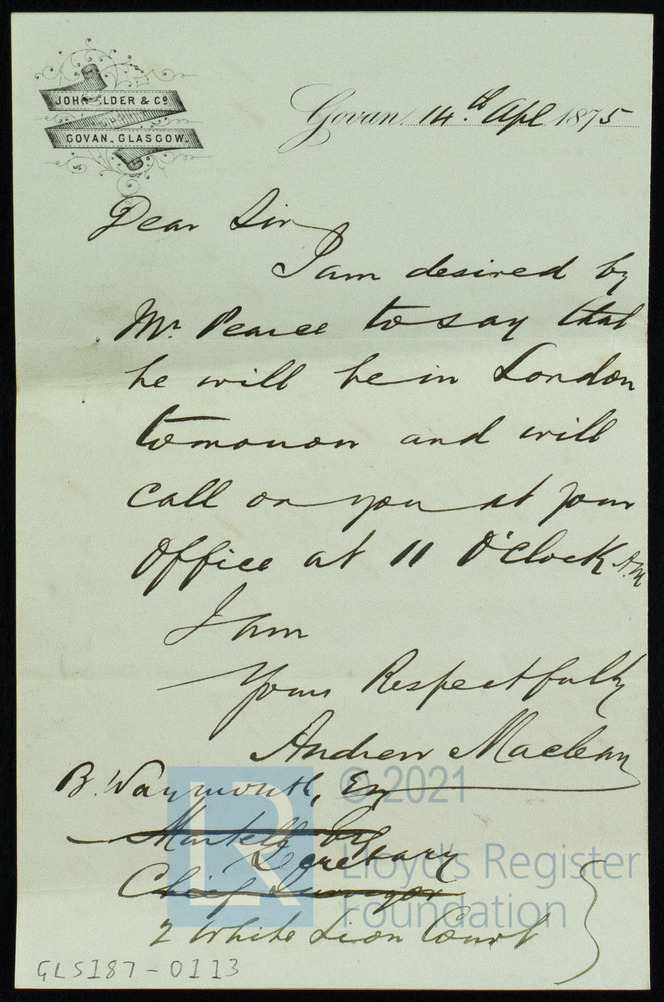 JOHN ELDER & Co
GOVAN. GLASGOW.
Govan, 14th Apl 1875
Dear Sir
I am desired by
Mr. Pearce to say that
he will be in London
tomorrow and will
call on you at your
Office at 11 O'Clock A.M
I am
Yours Respectfully
Andrew Maclean
B. Waymouth, Esq
Martell Esq
Secretary
Chief Surveyor
2 White Lion Court
© 2021
Lloyd's Register
Foundation
GLS187-0113